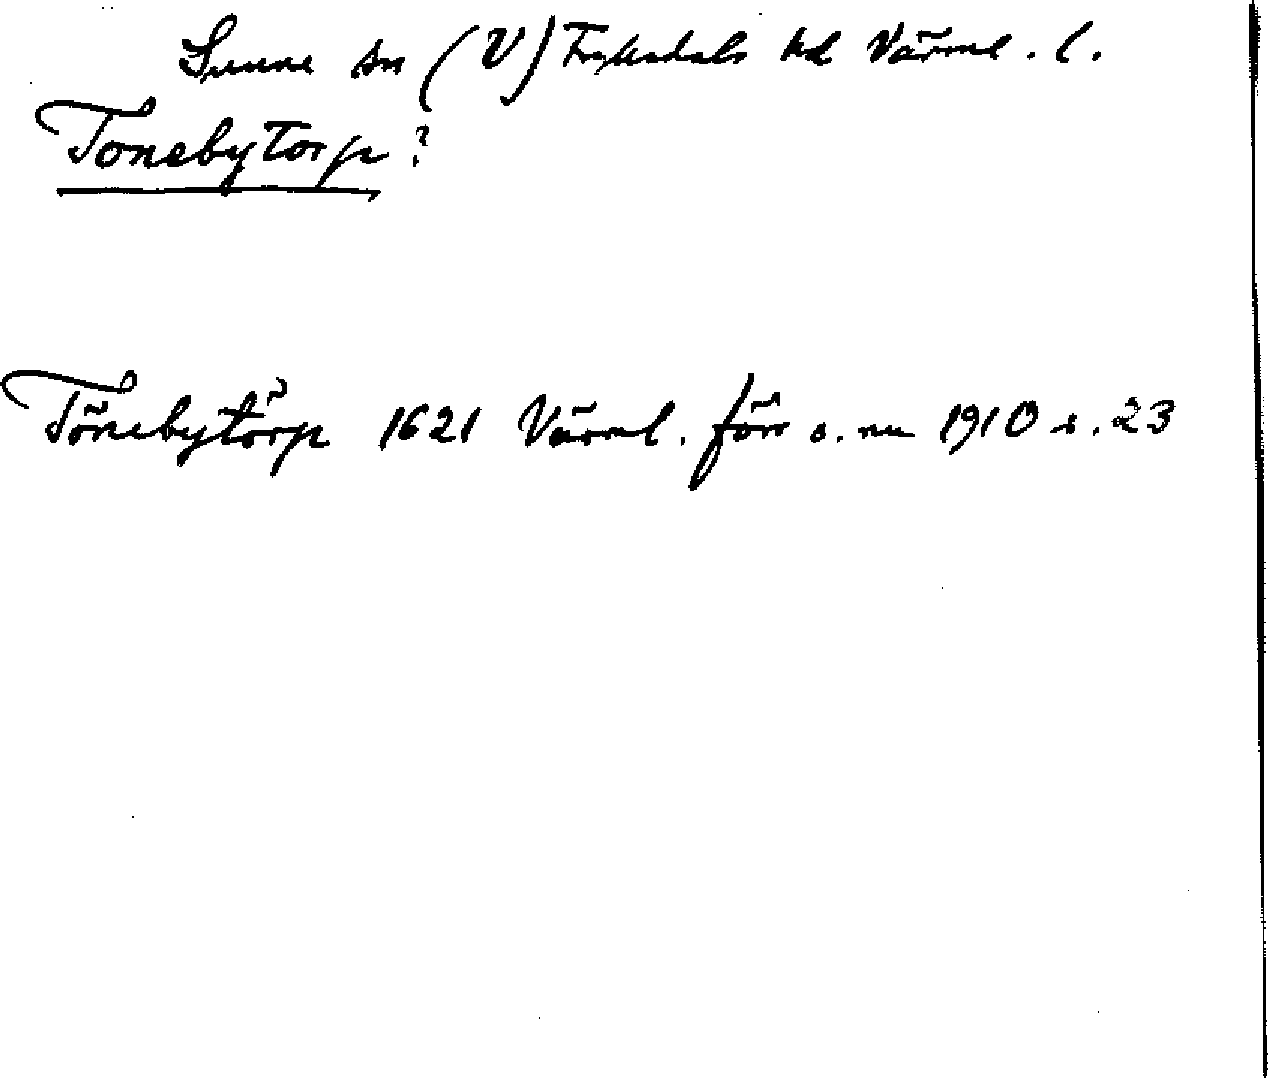 Sunne sn (V) Fryksdals hd Värml. l.
Tonebytorp?
Tönebytörp 1621 Värml. förr o. nu 1910 s. 23